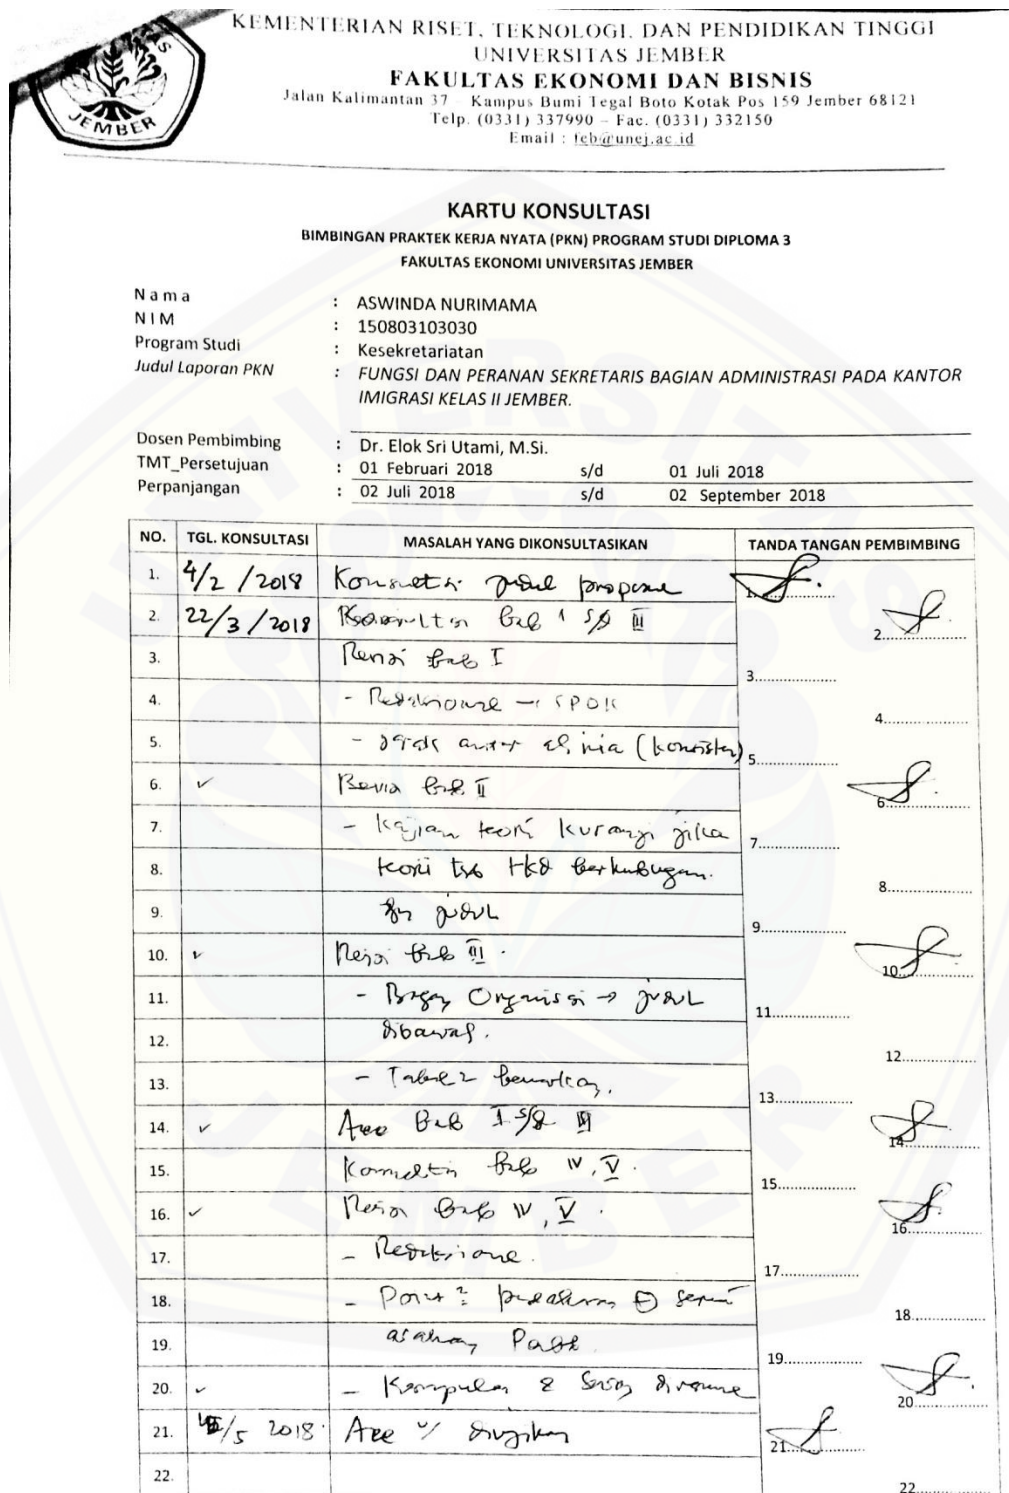 KEMENTERIAN RISET, TEKNOLOGI, DAN PENDIDIKAN TINGGI
UNIVERSITAS JEMBER
FAKULTAS EKONOMI DAN BISNIS
Jalan Kalimantan 37 – Kampus Bumi Tegal Boto Kotak Pos 159 Jember 68121
Telp. (0331) 337990 – Fac. (0331) 332150
Email : feb@unej.ac.id
JEMBER
KARTU KONSULTASI
BIMBINGAN PRAKTEK KERJA NYATA (PKN) PROGRAM STUDI DIPLOMA 3
FAKULTAS EKONOMI UNIVERSITAS JEMBER
N a m a : ASWINDA NURIMAMA
N I M : 150803103030
Program Studi : Kesekretariatan
Judul Laporan PKN : FUNGSI DAN PERANAN SEKRETARIS BAGIAN ADMINISTRASI PADA KANTOR
IMIGRASI KELAS II JEMBER.
Dosen Pembimbing : Dr. Elok Sri Utami, M.Si.
TMT_Persetujuan : 01 Februari 2018 s/d 01 Juli 2018
Perpanjangan : 02 Juli 2018 s/d 02 September 2018
NO. TGL. KONSULTASI MASALAH YANG DIKONSULTASIKAN TANDA TANGAN PEMBIMBING
1. 4/2 /2018 Konsultasi judul 1.
2. 22/3 /2018 Konsultasi bab I s/d III 2.
3. Revisi bab I 3.
4. - → SPOK 4.
5. - Jarak antar alinia (konsisten) 5.
6. ✓ Revisi bab II 6.
7. - Kajian teori kurangi jika 7.
8. teori tsb tkd berhubungan. 8.
9. dg judul 9.
10. ✓ Revisi bab III . 10.
11. - Bagan Organisasi → judul 11.
12. dibawah. 12.
13. - Tabel 2 13.
14. ✓ Acc Bab I s/d III 14.
15. Konsultasi bab IV, V. 15.
16. ✓ Revisi Bab IV, V . 16.
17. - 17.
18. - 18.
19. 19.
20. ✓ - Kesimpulan & 20.
21. /5 2018 Acc u/ diujikan 21.
22. 22.